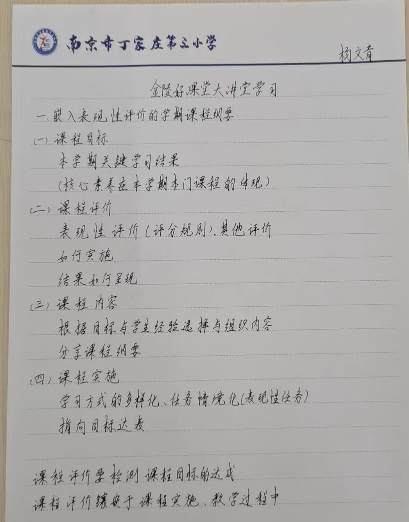 南京市丁家庄第二小学
杨文青
金陵好课堂大讲堂学习
一、嵌入表现性评价的学期课程纲要
(一)课程目标
本学期关键学习结果
(核心素养在本学期本门课程的体现)
(二)课程评价
表现性评价(评分规则)、其他评价
如何实施
结果如何呈现
(三)课程内容
根据目标与学生经验选择与组织内容
分享课程纲要
(四)课程实施
学习方式的多样化、任务情境化(表现性任务)
指向目标达成
课程评价要检测课程目标的达成
课程评价镶嵌于课程实施、教学过程中